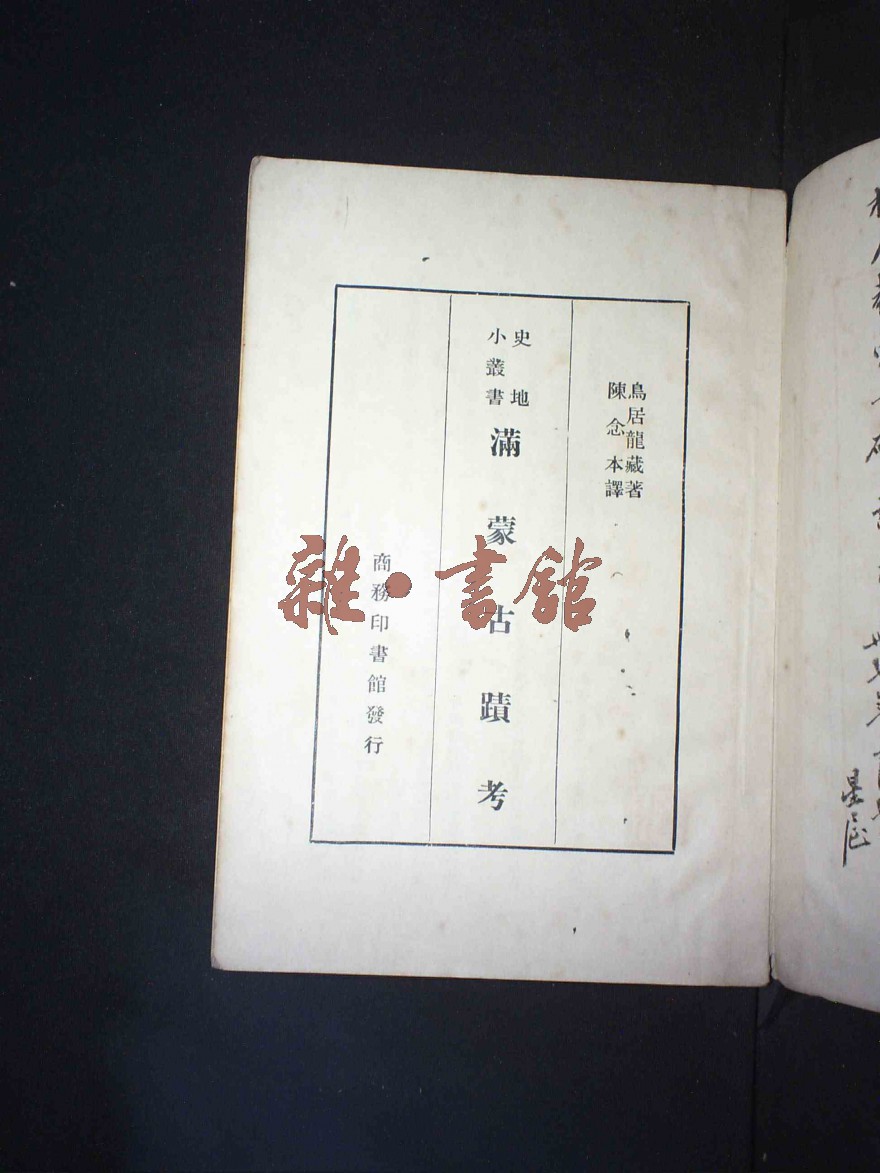 鳥居龍藏著
陳念本譯
史地
小叢書
滿蒙古蹟考
商務印書館發行
雜·書館
星